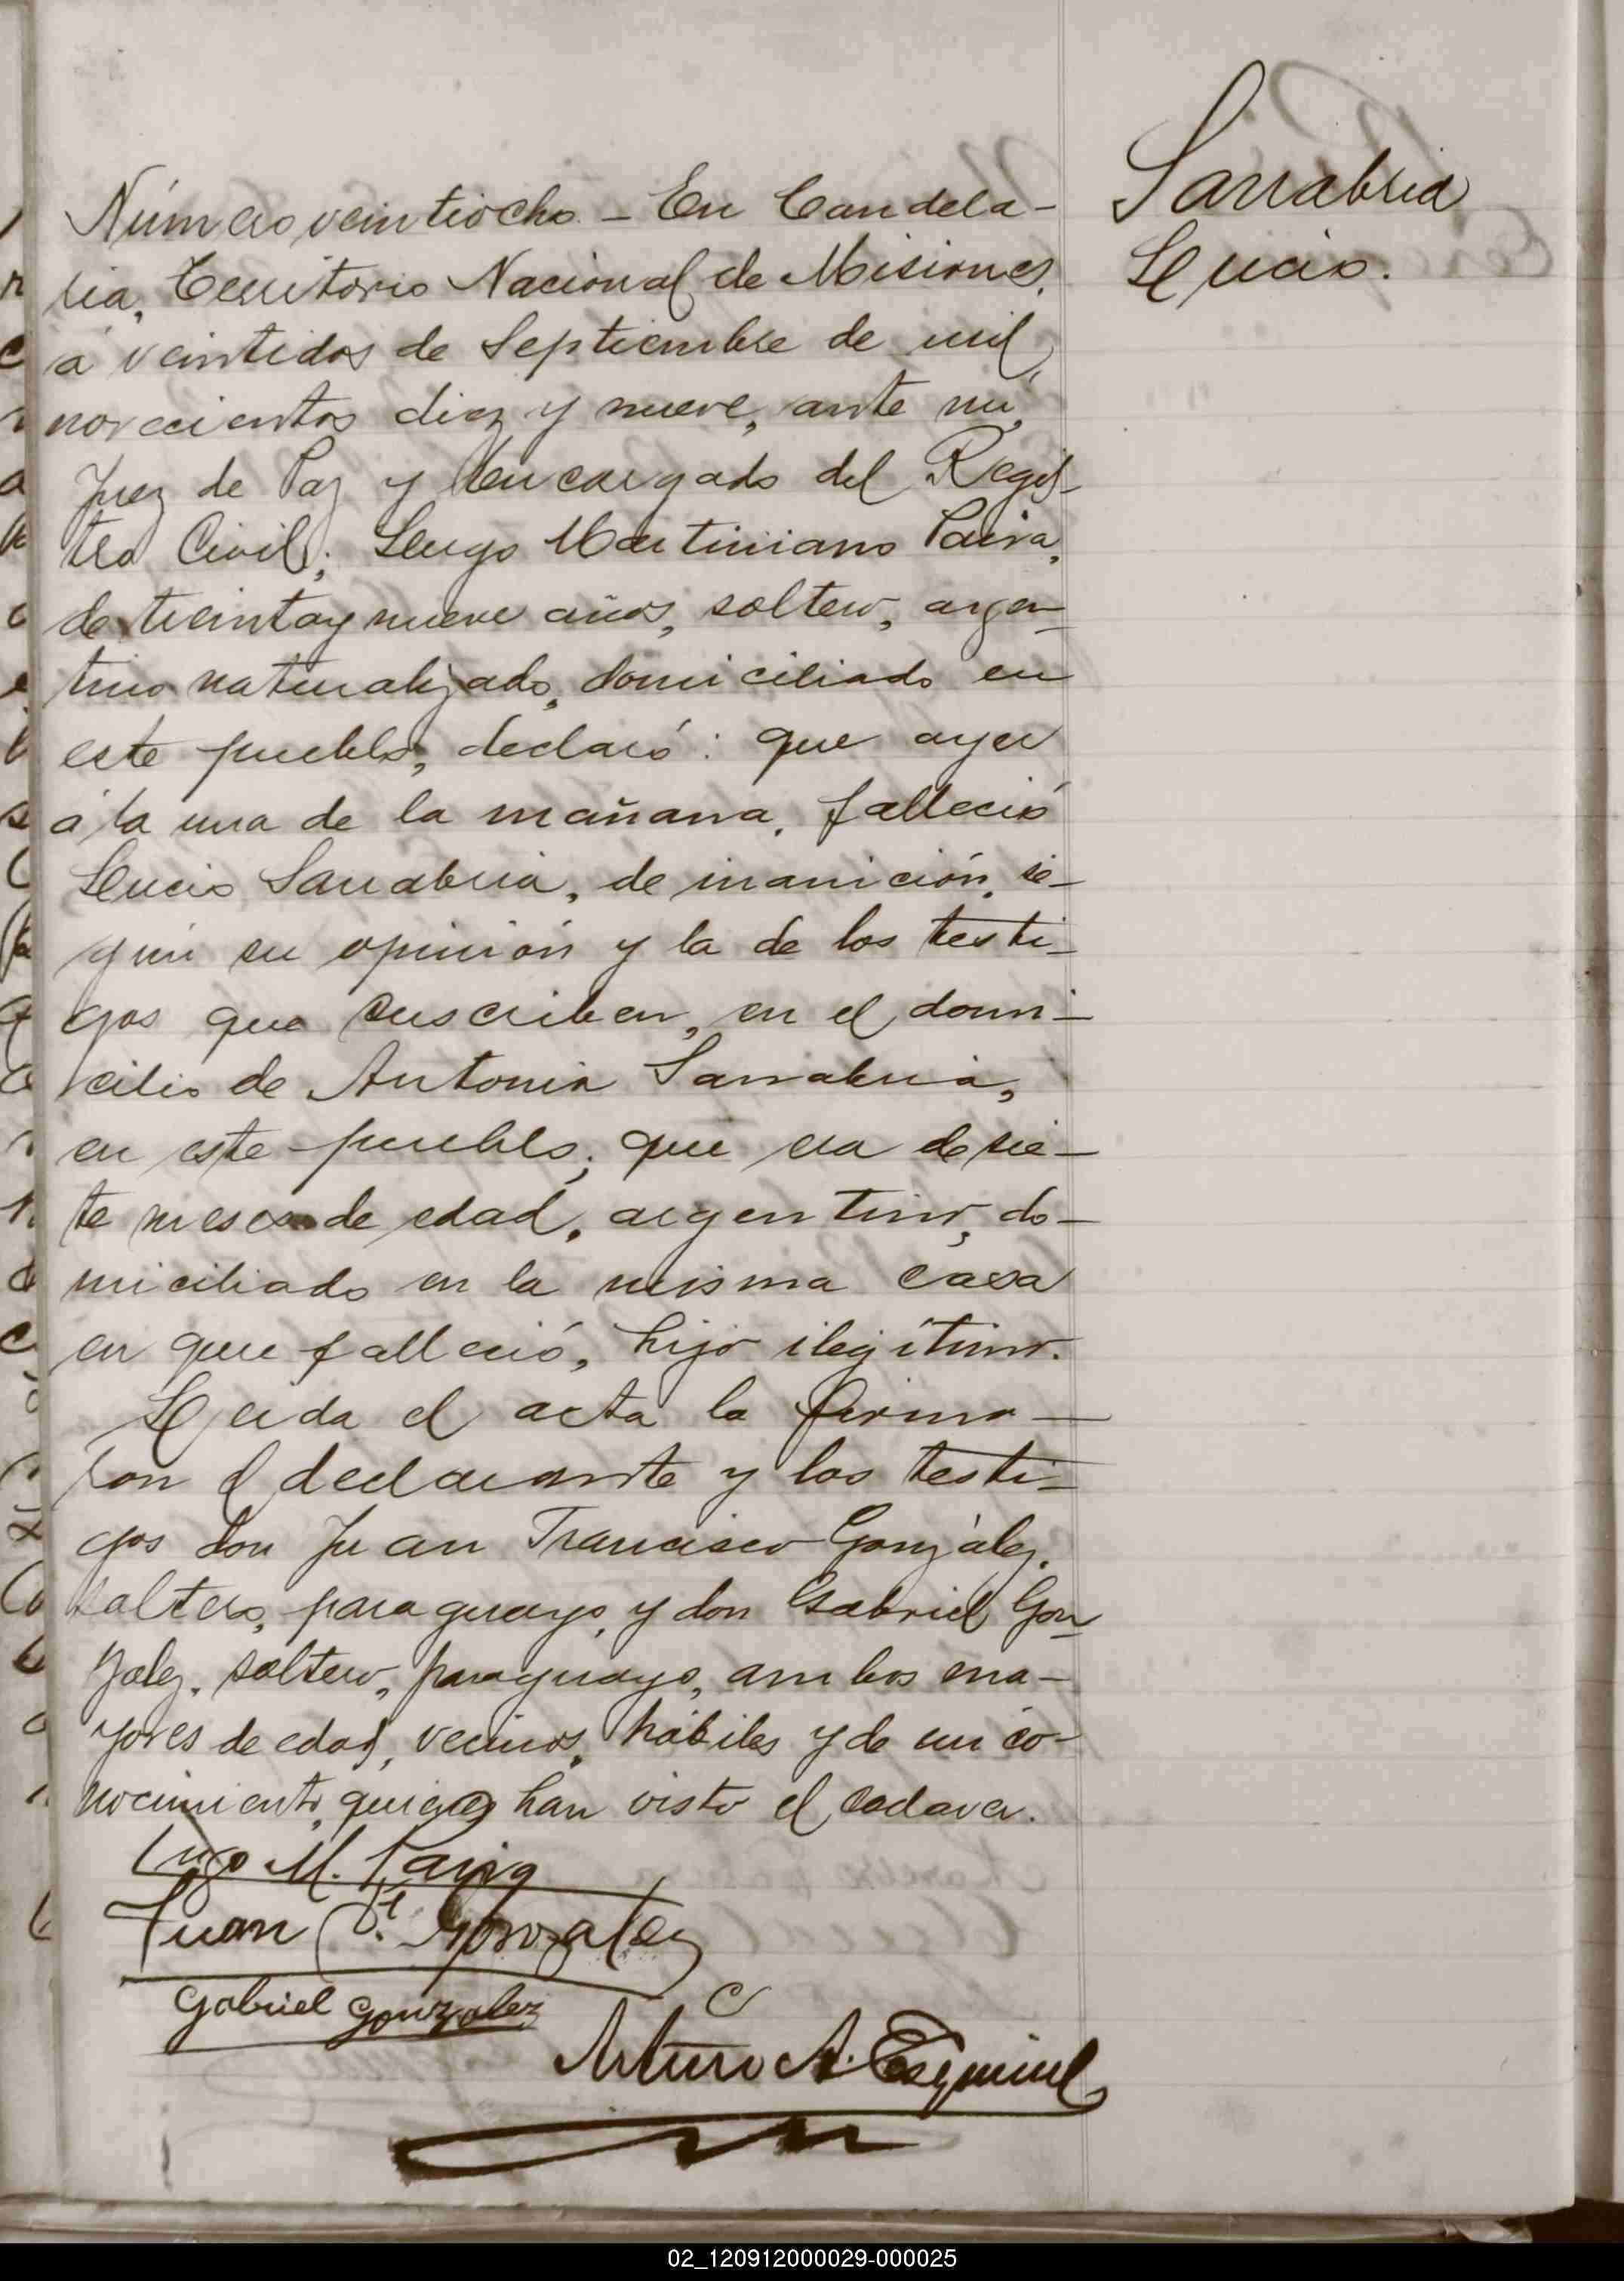 Sanabria
Lucio.
Número veintiocho - En Candela-
ria, Territorio Nacional de Misiones,
á veintidos de Septiembre de mil
novecientos diez y nueve, ante mi,
Juez de Paz y Encargado del Regis-
tro Civil; Lugo Martiniano Paiva,
de treinta y nueve años, soltero, argen-
tino naturalizado, domiciliado en
este pueblo, declaró: que ayer
á la una de la mañana, falleció
Lucio Sanabria, de inanición, se-
gún su opinión y la de los testi-
gos que suscriben, en el domi-
cilio de Antonia Sanabria,
en este pueblo; que era de sie-
te meses de edad, argentino, do-
miciliado en la misma casa
en que falleció, hijo ilegítimo.
Leida el acta la firma-
ron el declarante y los testi-
gos don Juan Francisco González,
soltero, paraguayo, y don Gabriel Gon-
zalez, soltero, paraguayo, ambos ma-
yores de edad, vecinos, hábiles y de mi co-
nocimiento, quienes han visto el cadaver.
Lugo M. Paiva
Juan Gonzalez
Gabriel Gonzalez
Arturo A.
02_120912000029-000025